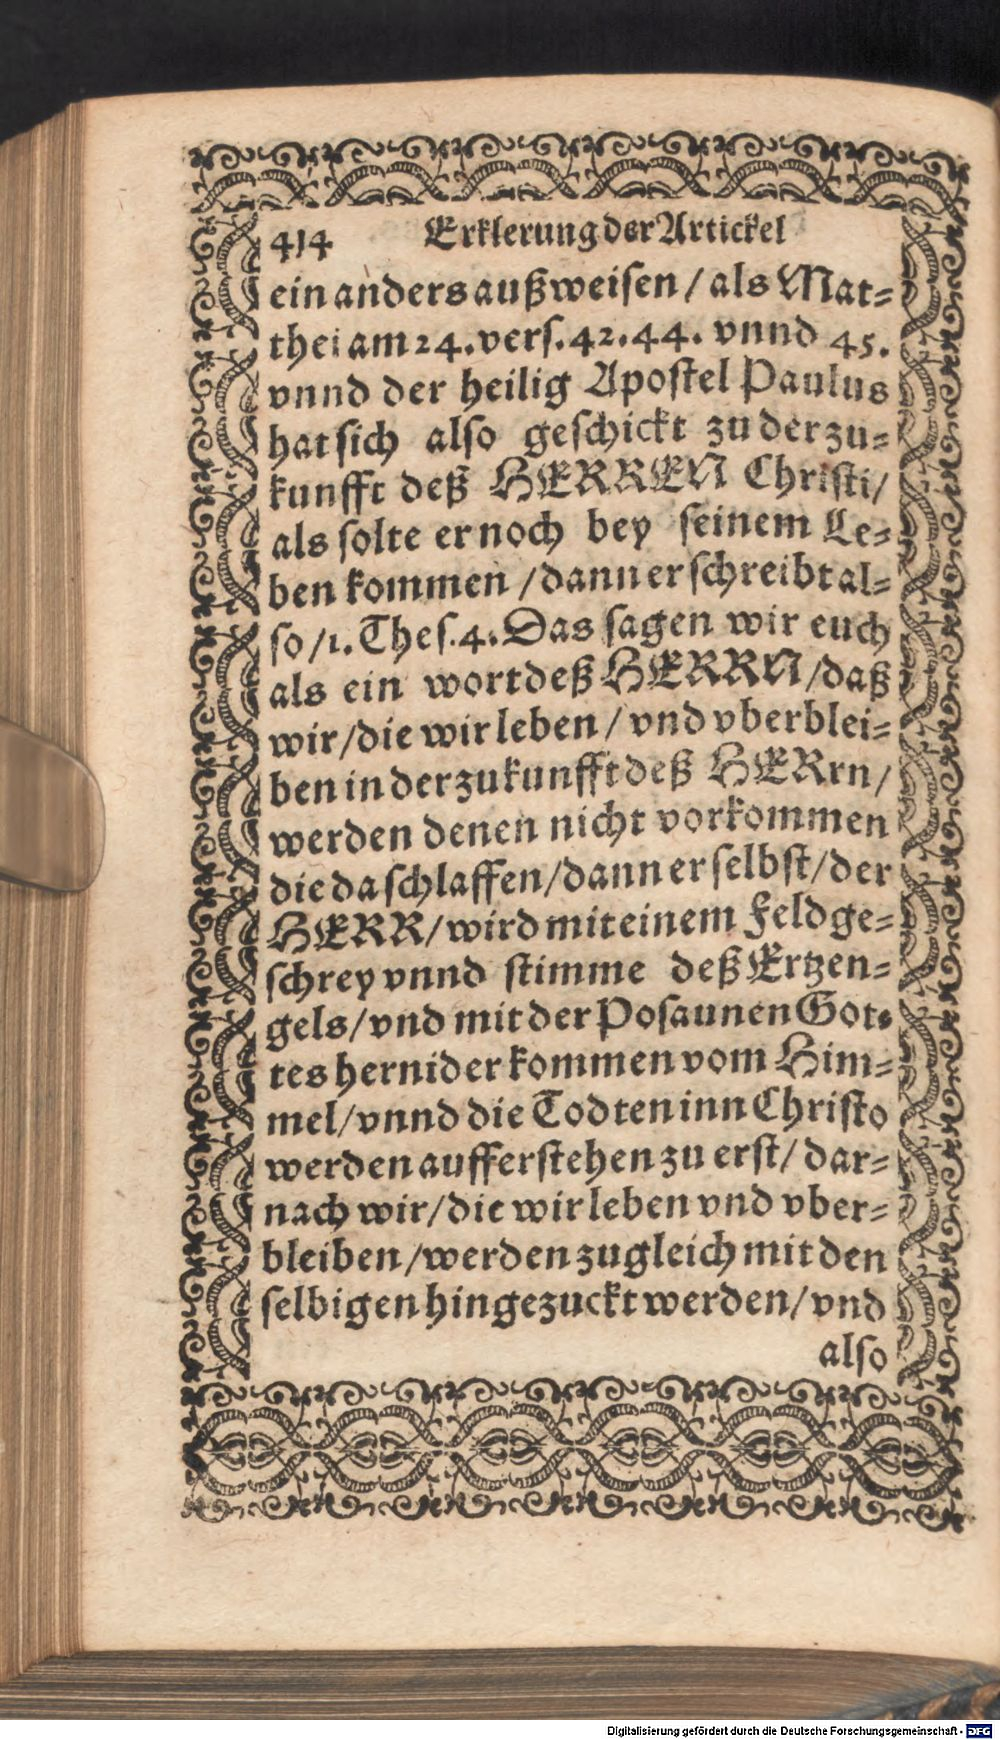 414 Erklerung der Artickel
ein anders außweisen / als Mat⸗
thei am 24. vers. 42. 44. vnnd 45.
vnnd der heilig Apostel Paulus
hat sich also geschickt zu der zu⸗
kunfft deß HERREN Christi /
als solte er noch bey seinem Le⸗
ben kommen / dann er schreibt al⸗
so / 1. Thes. 4. Das sagen wir euch
als ein wort deß HERRN / daß
wir / die wir leben / vnd vberblei⸗
ben in der zukunfft deß HERrn /
werden denen nicht vorkommen
die da schlaffen / dann er selbst / der
HERR / wird mit einem Feldge⸗
schrey vnnd stimme deß Ertzen⸗
gels / vnd mit der Posaunen Got⸗
tes hernider kommen vom Him⸗
mel / vnnd die Todten inn Christo
werden aufferstehen zu erst / dar⸗
nach wir / die wir leben vnd vber⸗
bleiben / werden zugleich mit den
selbigen hingezuckt werden / vnd
also
Digitalisierung gefördert durch die Deutsche Forschungsgemeinschaft - DFG